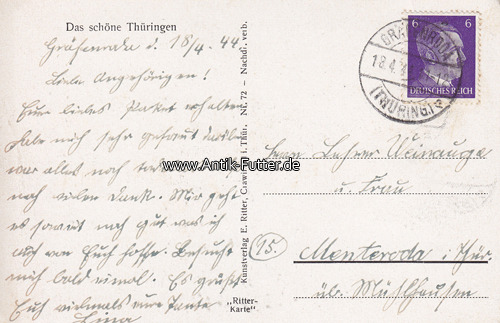 Das schöne Thüringen
Gräfenroda d. 18/4. 44
Liebe Angehörigen!
Euer liebes Paket erhalten
habe mich sehr gefreut
war alles noch
noch vielen Dank. Mir geht
es soweit noch gut was ich
auch von Euch hoffe. Besucht
mich bald einmal. Es grüßt
Euch vielmals eure Tante
Lina
Kunstverlag E. Ritter, Crawinkel i. Thür. Nr. 72 - Nachdr. verb.
„Ritter-
Karte“
GRÄFENRODA
18.4.
(THÜRING.)
6 6
DEUTSCHES REICH
Herrn Lehrer Weinauge
u. Frau
(15.) Menteroda i. Thür.
üb. Mühlhausen
www.Antik-Futter.de